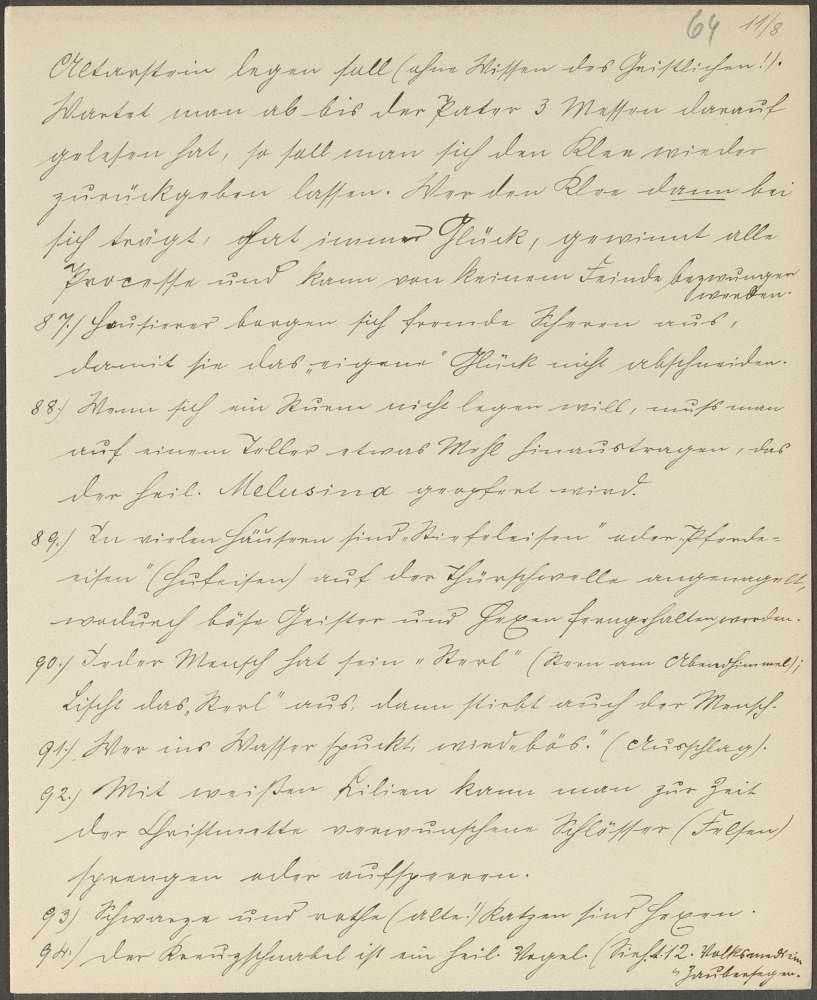 64 11/8
Altarstein legen soll (ohne Wissen des Geistlichen!).
Wartet man ab bis der Pater 3 Messen darauf
gelesen hat, so soll man sich den Klee wieder
zurückgeben lassen. Wer den Klee dann bei
sich trägt, hat immer Glück, gewinnt alle
Processe und kann von keinem Feinde bezwungen
werden.
87.) Hausierer borgen sich fremde Scheren aus,
damit sie das "eigene" Glück nicht abschneiden.
88.) Wenn sich ein Sturm nicht legen will, muß man
auf einem Teller etwas Mehl hinaustragen, das
der heil. Melusina geopfert wird.
89.) In vielen Häusern sind "Stiefeleisen" oder "Pferde-
eisen" (Hufeisen) auf der Thürschwelle angenagelt,
wodurch böse Geister und Hexen ferngehalten werden.
90.) Jeder Mensch hat sein "Sterl" (Stern am Abendhimmel);
Lischt das "Sterl" aus, dann stirbt auch der Mensch.
91.) Wer ins Wasser spuckt, wird "bös." (Ausschlag).
92.) Mit weißen Lilien kann man zur Zeit
der Christmette verwunschene Schlösser (Felsen)
sprengen oder aufsperren.
93.) Schwarze und rothe (alte!) Katzen sind Hexen.
94.) Der Kreuzschnabel ist ein heil. Vogel. (Sieh 12. Volksmedizin
" Zaubersegen.